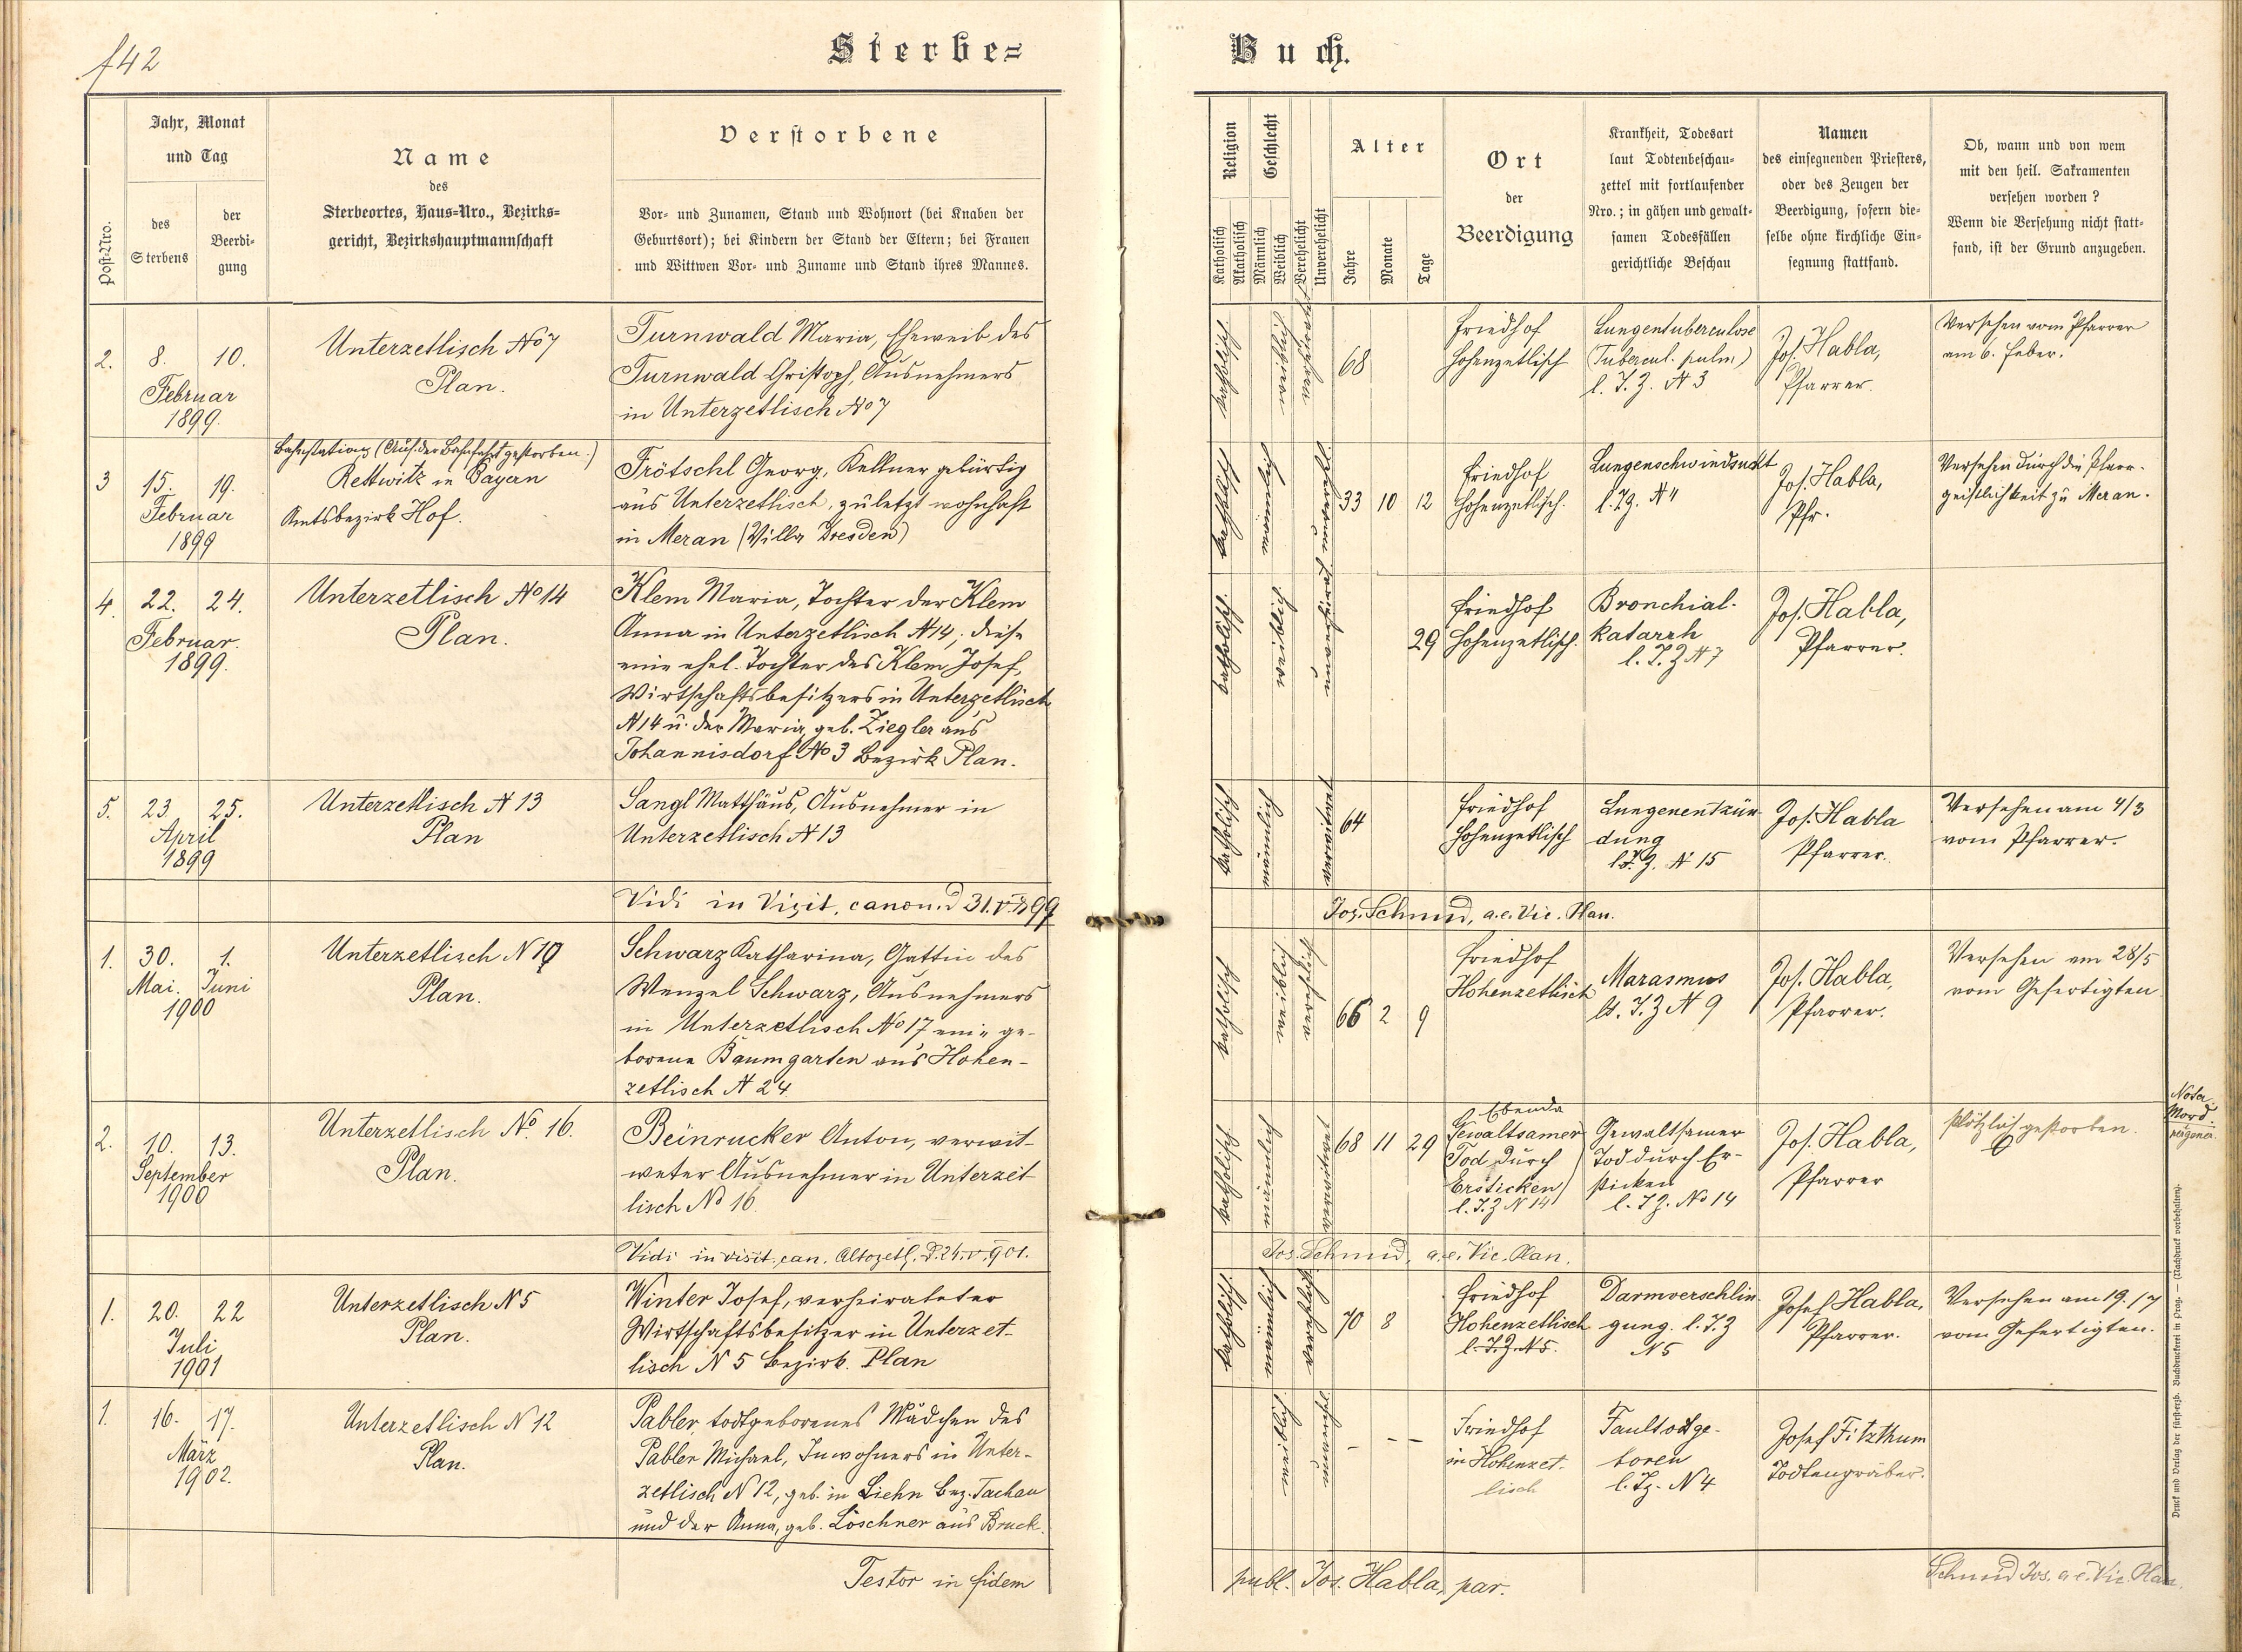 f42
Sterbe=
Buch.
Post=Nro.
Jahr, Monat
und Tag
des
Sterbens
der
Beerdi=
gung
Name
des
Sterbeortes, Haus=Nro., Bezirks=
gericht, Bezirkshauptmannschaft
Verstorbene
Vor= und Zunamen, Stand und Wohnort (bei Knaben der
Geburtsort); bei Kindern der Stand der Eltern; bei Frauen
und Wittwen Vor= und Zuname und Stand ihres Mannes.
Religion
Katholisch
Akatholisch
Geschlecht
Männlich
Weiblich
Verehelicht
Unverehelicht
Alter
Jahre
Monate
Tage
Ort
der
Beerdigung
Krankheit, Todesart
laut Todtenbeschau=
zettel mit fortlaufender
Nro.; in gähen und gewalt=
samen Todesfällen
gerichtliche Beschau
Namen
des einsegnenden Priesters,
oder des Zeugen der
Beerdigung, sofern die=
selbe ohne kirchliche Ein=
segnung stattfand.
Ob, wann und von wem
mit den heil. Sakramenten
versehen worden?
Wenn die Versehung nicht statt=
fand, ist der Grund anzugeben.
2. 8. 10.
Februar
1899.
Unterzetlisch No 7
Plan.
Turnwald Maria, Eheweib des
Turnwald Christoph, Ausnehmers
in Unterzetlisch No 7
katholisch.
weiblich
68
Friedhof
Hohenzetlisch
Lungentuberculose
(Tubercul. pulm)
l. T. Z. N 3
Jos. Habla,
Pfarrer.
Versehen vom Pfarrer
am 6. Feber.
3 15. 19.
Februar
1899
Bahnstation (Auf der Bahnfahrt gestorben.)
Rettwitz in Bayern
Amtsbezirk Hof.
Frötschl Georg, Kellner gebürtig
aus Unterzetlisch, zuletzt wohnhaft
in Meran (Villa Dresden)
katholisch
männlich
unverehelicht
33 10 12
Friedhof
Hohenzetlisch.
Lungenschwindsucht
l. Zg. N 4
Jos. Habla,
Pfr.
Versehen durch die Pfarr-
geistlichkeit zu Meran.
4. 22. 24.
Februar.
1899.
Unterzetlisch No 14
Plan.
Klem Maria, Tochter der Klem
Anna in Unterzetlisch N 14; diese
eine ehel. Tochter des Klem Josef,
Wirtschaftsbesitzers in Unterzetlisch
N 14 u. der Maria, geb. Ziegler aus
Johannisdorf No 3 Bezirk Plan.
katholisch.
weiblich
29
Friedhof
Hohenzetlisch.
Bronchial-
katarrh
l. T. Z N 7
Jos. Habla,
Pfarrer.
5. 23 25.
April
1899
Unterzetlisch N 13
Plan
Sangl Matthäus, Ausnehmer in
Unterzetlisch N 13
katholisch
männlich
verwitwet
64
Friedhof
Hohenzetlisch
Lungenentzün-
dung
l. T. Z. N 15
Jos. Habla
Pfarrer.
Versehen am 4/3
vom Pfarrer.
Vidi in Visit. canon. d 31. V. 899
Jos. Schmid, a.e. Vic. Plan.
1. 30. 1.
Mai. Juni
1900
Unterzetlisch N 17
Plan.
Schwarz Katharina, Gattin des
Wenzel Schwarz, Ausnehmers
in Unterzetlisch No 17 eine ge-
borene Baumgarten aus Hohen-
zetlisch N 24.
katholisch
weiblich
verehelicht
66 2 9
Friedhof
Hohenzetlisch
Marasmus
lt. T. Z N 9
Jos. Habla,
Pfarrer.
Versehen am 28/5
vom Gefertigten
2. 10. 13.
September
1900
Unterzetlisch No. 16.
Plan.
Beinrucker Anton, verwit-
weter Ausnehmer in Unterzet-
lisch No 16.
katholisch
männlich
verwitwet
68 11 29
Ebenda
Gewaltsamer
Tod durch
Ersticken
l. T. Z N 14
Gewaltsamer
Tod durch Er-
sticken
l. T Z. No 14
Jos. Habla,
Pfarrer
plötzlich gestorben.
Nota.
Mord
Vidi in visit. can. Altozetl. D. 24. V. 901.
Jos. Schmid, a.e. Vic. Plan.
1. 20. 22
Juli
1901
Unterzetlisch N 5
Plan.
Winter Josef, verheirateter
Wirtschaftsbesitzer in Unterzet-
lisch N 5 Bezirk. Plan
katholisch.
männlich
verehelicht
70 8
Friedhof
Hohenzetlisch
l. T. Z. N 5.
Darmverschlin-
gung. l. T. Z
N 5
Josef Habla,
Pfarrer.
Versehen am 19./7
vom Gefertigten.
1. 16. 17.
März
1902.
Unterzetlisch N 12
Plan.
Pabler, todtgeborenes Mädchen des
Pabler Michael, Inwohners in Unter-
zetlisch N 12, geb. in Liehn Bez. Tachau
und der Anna, geb. Löschner aus Bruck.
weiblich
- - -
Friedhof
in Hohenzet-
lisch
Faultodtge-
boren
l. Tz. N 4
Josef Fitzthum
Todtengräber.
Testor in fidem
publ. Jos. Habla, par.
Schmid Jos. a.e. Vic. Plan.
Druck und Verlag der fürst=erzb. Buchdruckerei in Prag. — (Nachdruck vorbehalten).